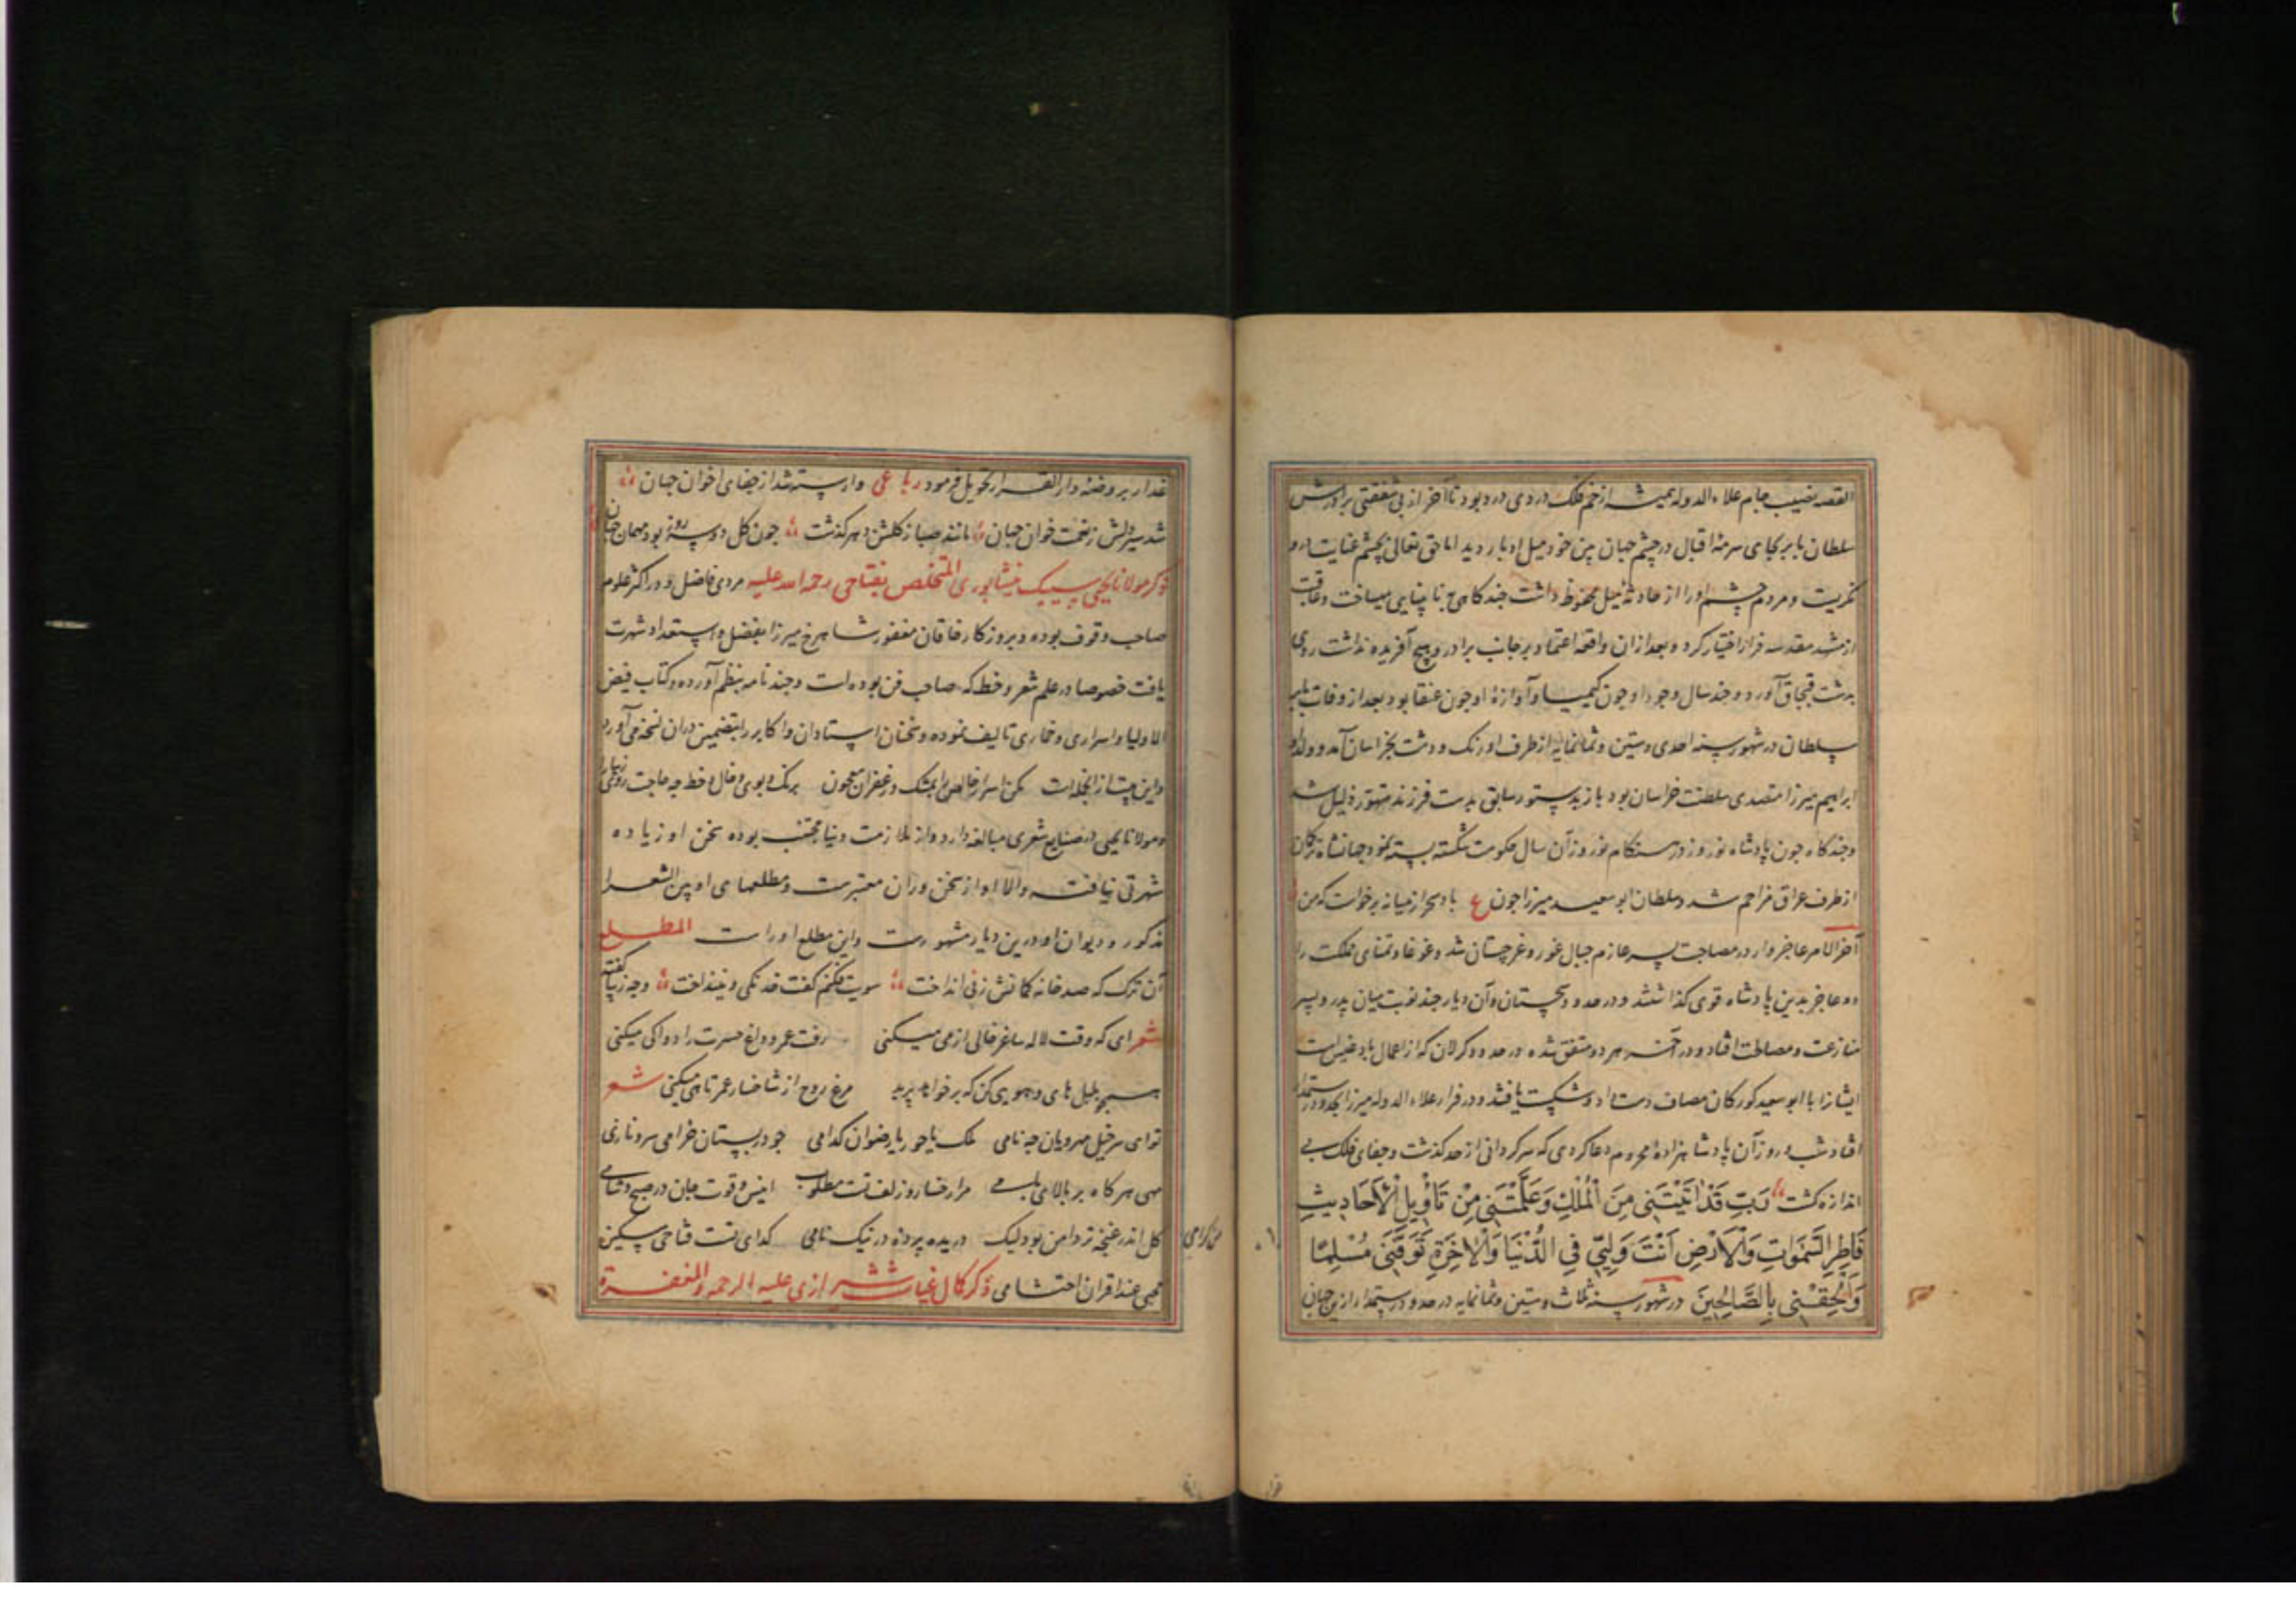 القصه نصیب جام علاء الدوله همیشه از خم فلک دردی درد بود تا آخر از بی شفقتی برادرش
سلطان بابر بجای سرمهٔ اقبال در چشم جهان بین خود میل ادبار دید اما حق تعالی بچشم عنایت درو
نگریست و مردم چشم او را از حادثهٔ میل محفوظ داشت چندگاهی نابینایی میساخت و عاقبت
از مشهد مقدسه فرار اختیار کرد و بعد از ان واقعه اعتماد بر جانب برادر و هیچ آفریده نداشت روی
بدشت قبچاق آورد و چند سال وجود او چون کیمیا و آوازهٔ او چون عنقا بود بعد از وفات بابر
سلطان در شهور سنه احدی و ستین و ثمانمایه از طرف اورنک و دشت بخراسان آمد و ولد او
ابراهیم میرزا متصدی سلطنت خراسان بود باز بدستور سابق بدست فرزند متهور ذلیل شد
و چندگاه چون پادشاه نوروز در هنگام نوروز آن سال حکومت شکسته بسته نمود جهانشاه ترکمان
از طرف عراق مزاحم شد و سلطان ابو سعید میرزا چون ع باد سحر از میانه برخواست که من
آخر الامر عاجز وار در مصاحبت پسر عازم جبال غور و غرجستان شد و غوغا و تمنای مملکت را
دو عاجز بدین پادشاه قوی کذاشتند و در حدود سجستان و آن دیار چند نوبت میان پدر و پسر
منازعت و مصالحت افتاد و در آخر هر دو متفق شده در حدود کرلان که از اعمال بادغیس است
ایشانرا با ابو سعید کورکان مصاف دست داد و شکست یافتند و در فرار علاء الدوله میرزا بحدود رستمدار
افتاد شب و روز آن پادشاهزادهٔ محروم دعا کردی که سرکردانی از حد کذشت و جفای فلک بی
اندازه کشت رَبِّ قَدْ اٰتَيْتَنِى مِنَ الْمُلْكِ وَعَلَّمْتَنِى مِنْ تَأْوِيلِ الْأَحَادِيثِ
فَاطِرِ السَّمٰوَاتِ وَالْأَرْضِ أَنْتَ وَلِيِّى فِى الدُّنْيَا وَالْاٰخِرَةِ تَوَفَّنِى مُسْلِمًا
وَأَلْحِقْنِى بِالصَّالِحِينَ در شهور سنه ثلاث و ستین و ثمانمایه در حدود رستمدار ازین جهان
غدار بروضهٔ دار القرار تحویل فرمود رباعی وارسته شد از جفای اخوان جهان
شد سیر دلش ز نعمت خوان جهان مانند صبا ز کلشن دهر کذشت چون کل دو سه روز بود مهمان جهان
ذکر مولانا یحیی سیبک نیشابوری المتخلص بفتاحی رحمه الله علیه مردی فاضل و در اکثر علوم
صاحب وقوف بوده و بروزکار خاقان مغفور شاهرخ میرزا بفضل و استعداد شهرت
یافت خصوصا در علم شعر و خط که صاحب فن بوده است و چند نامه بنظم آورده و کتاب فیض
الاولیا و اسراری و خماری تالیف نموده و سخنان استادان و اکابر را بتضمین در ان نسخه می آورد
و این بیت از انجمله است مکن اسرار خالص را بمشک و زعفران معجون برنک و بوی و خال و خط چه حاجت روی زیبا را
و مولانا یحیی در صنایع شعری مبالغه دارد و از ملازمت دنیا مجتنب بوده سخن او زیاده
شهرتی نیافت و الا او از سخن وران معتبرست و مطلعهای او بین الشعرا
مذکور و دیوان او درین دیار مشهورست و این مطلع او راست المطلع
آن ترک که صد خانه کمانش ز نی انداخت سویت فکنم کفت خدنکی و نینداخت و چه زیبا کفته
شعر ای که وقت لاله ساغر خالی از می میکنی رفت عمر و داغ حسرت را دوا کی میکنی
همچو بلبل های و هویی کن که بر خواهد پرید مرغ روح از شاخسار عمر تا هی میکنی شعر
تو ای سرخیل مهرویان چه نامی ملک یا حور یا رضوان کدامی چو در بستان خرامی سرو نازی
مهی هرکاه بر بالای بامی مرا رخسار و زلف تست مطلوب انیس و قوت جان در صبح و شامی
کل اندر غنچه تر دامن بود لیک دریده پرده در نیک نامی کدای تست فتاحی مسکین
محبی عند اقران احتشامی ذکر کمال غیاث شیرازی علیه الرحمه و المغفرة